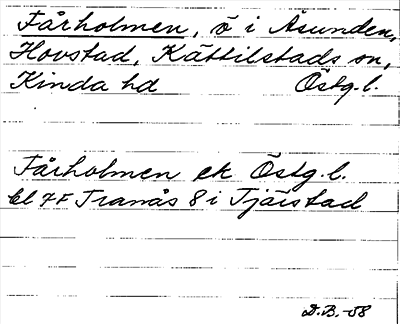 Fårholmen, ö i Åsunden,
Hovstad, Kättilstads sn,
Kinda hd Östg.l.
Fårholmen ek Östg.l.
bl 7F Tranås 8 i Tjärstad
D.B.-58